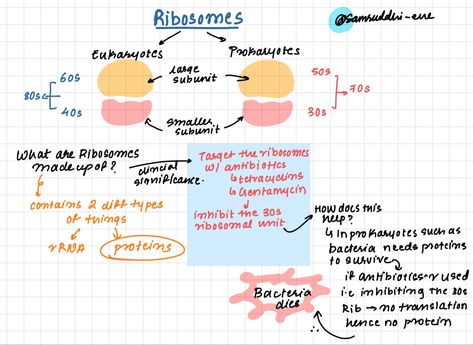 Ribosomes
@samruddhi-eve
Eukaryotes
Prokaryotes
80s
60s
40s
large
subunit
smaller
subunit
50s
30s
70s
What are Ribosomes
made up of?
clinical
significance.
contains 2 diff types
of things
rRNA
proteins
Target the ribosomes
w/ antibiotics
↳ tetracyclins
↳ Gentamycin
inhibit the 30s
ribosomal unit
How does this
help?
↳ In prokaryotes such as
bacteria needs proteins
to survive
if antibiotics r used
i.e inhibiting the 30s
Rib → no translation
hence no protein
Bacteria
dies